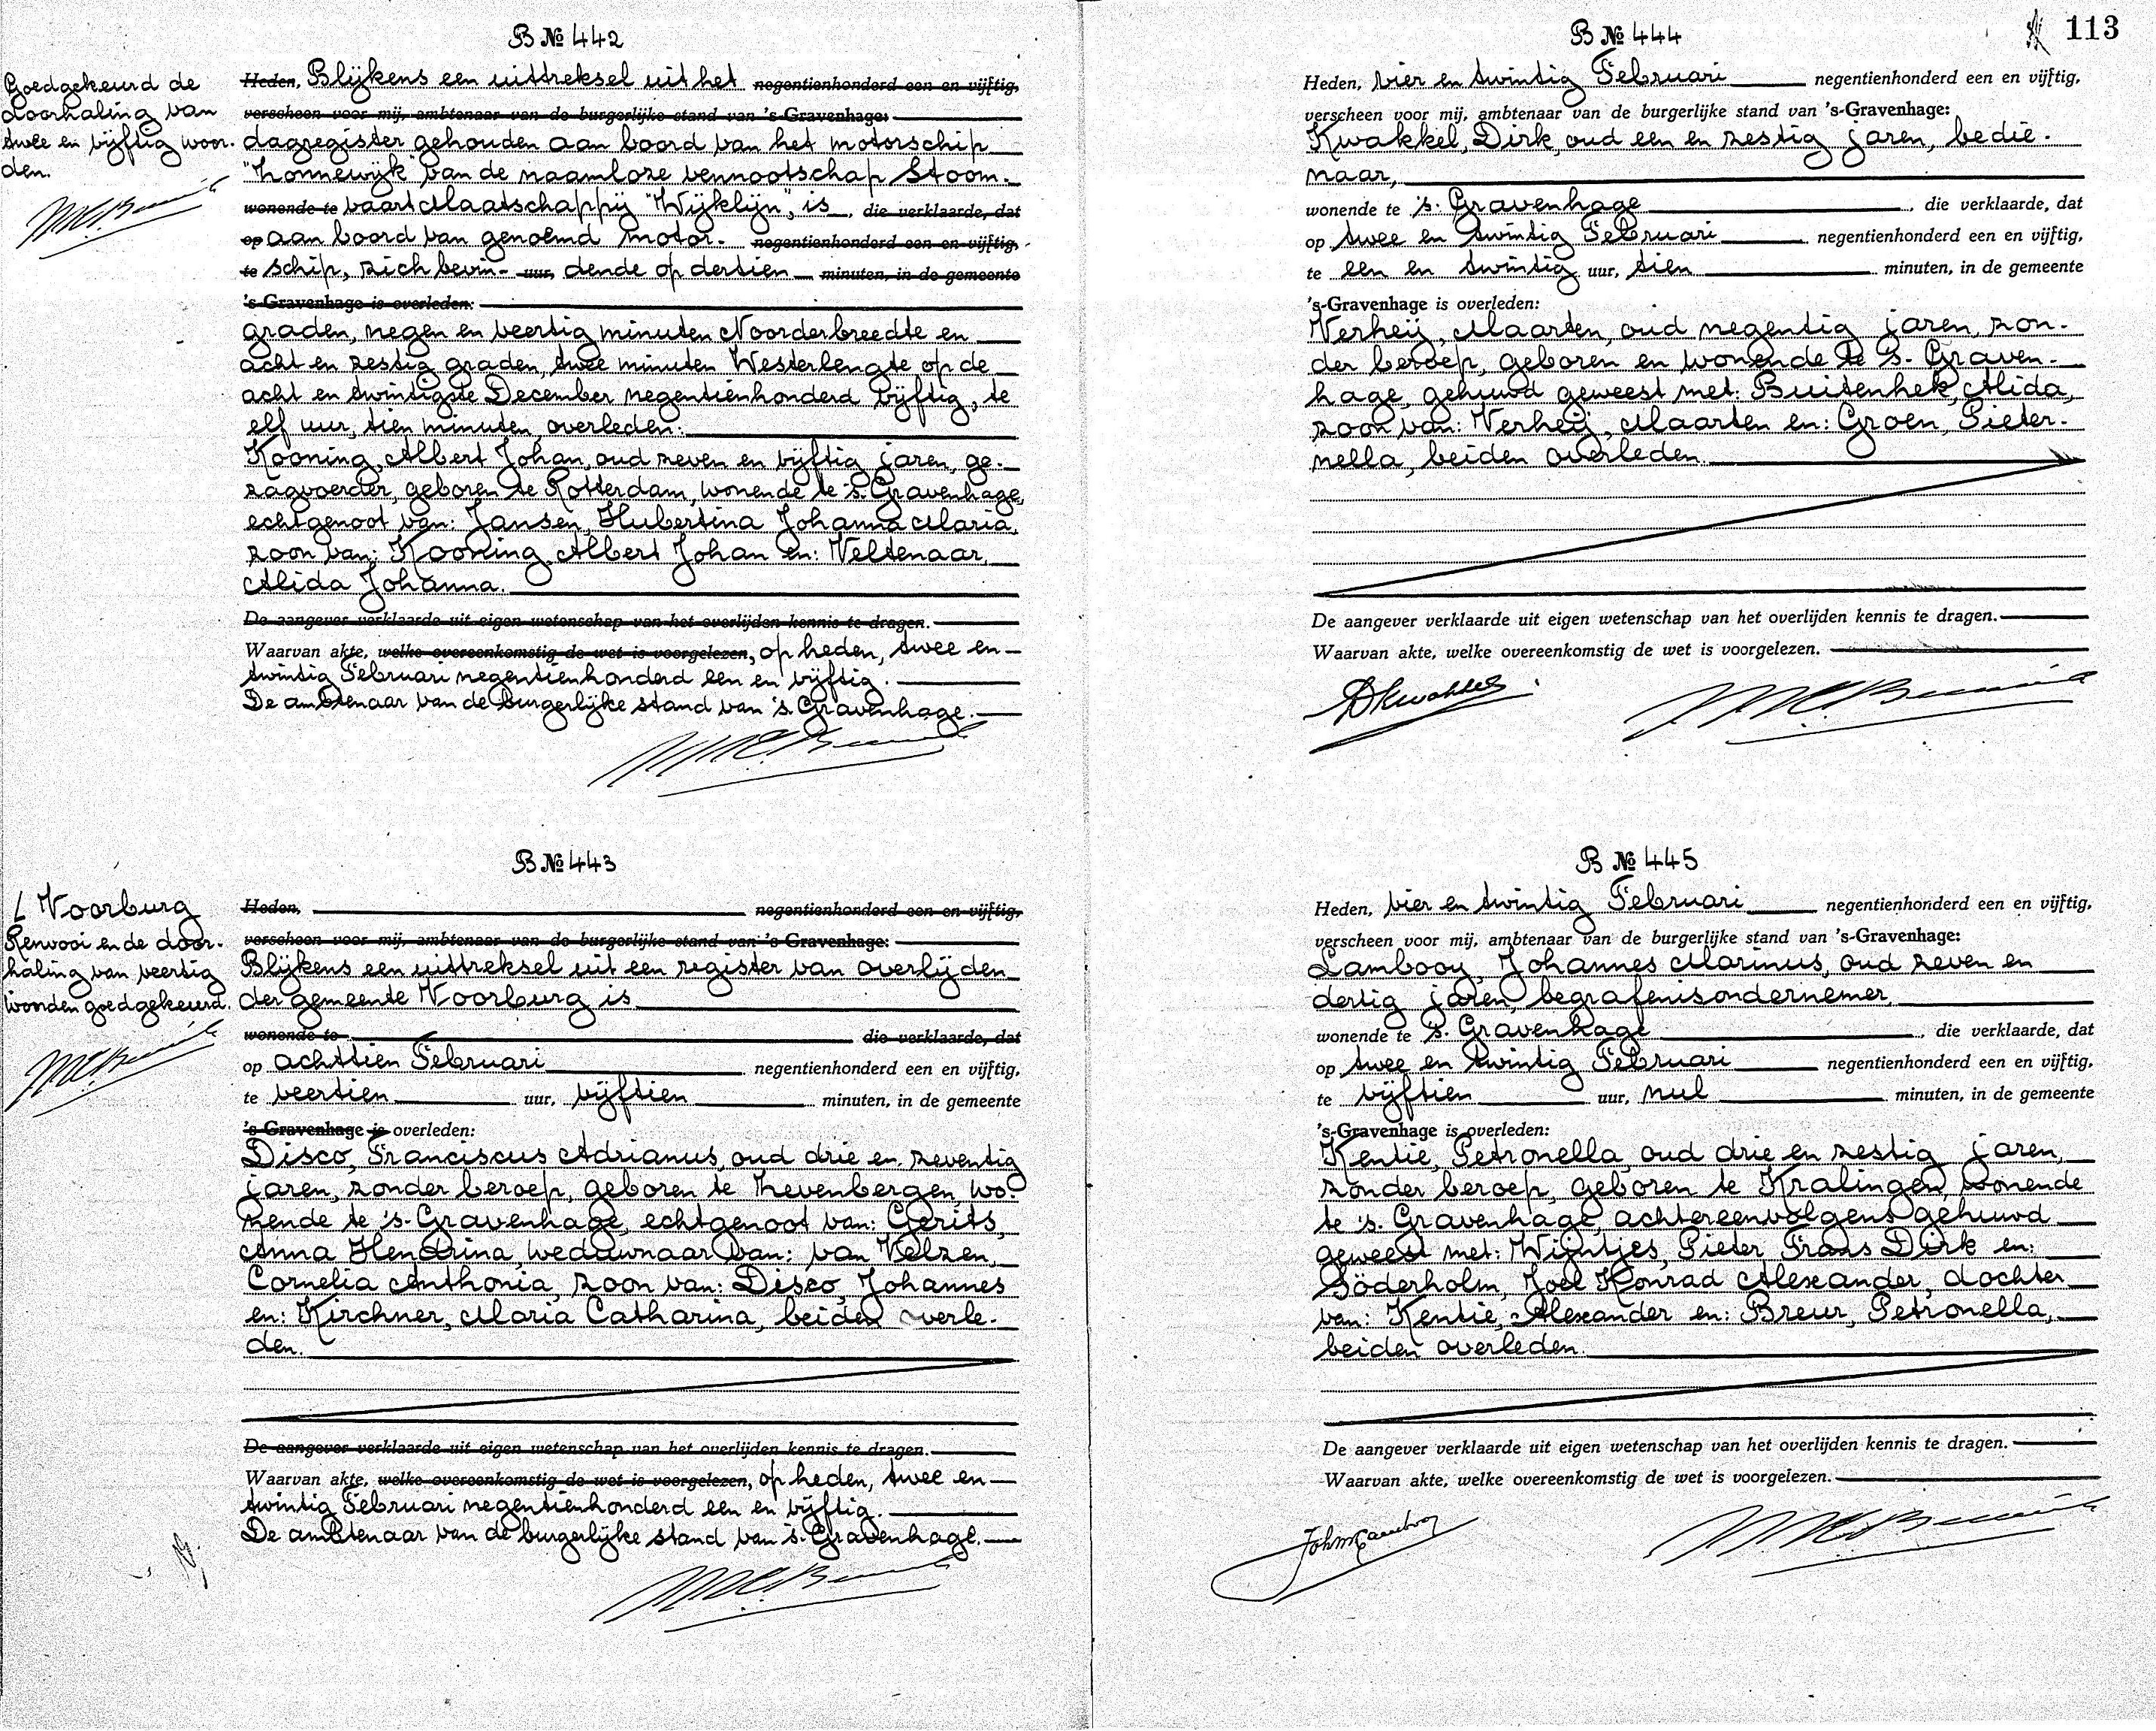 B № 442
Goedgekeurd de
doorhaling van
twee en vijftig woor-
den.
Heden, Blijkens een uittreksel uit het negentienhonderd een en vijftig,
verscheen voor mij, ambtenaar van de burgerlijke stand van 's-Gravenhage:
dagregister gehouden aan boord van het motorschip
"Lonnewijk" van de naamloze vennootschap Stoom-
wonende te vaart Maatschappij "Wijklijn", is, die verklaarde, dat
op aan boord van genoemd motor- negentienhonderd een en vijftig,
te schip, zich bevin- uur, dende op dertien minuten, in de gemeente
's-Gravenhage is overleden:
graden, negen en veertig minuten Noorderbreedte en
acht en zestig graden, twee minuten Westerlengte op de
acht en twintigste December negentienhonderd vijftig, te
elf uur, tien minuten overleden:
Kooning, Albert Johan, oud zeven en vijftig jaren, ge-
zagvoerder, geboren te Rotterdam, wonende te 's-Gravenhage,
echtgenoot van: Jansen, Hubertina Johanna Maria,
zoon van: Kooning, Albert Johan en: Veltenaar,
Alida Johanna.
De aangever verklaarde uit eigen wetenschap van het overlijden kennis te dragen.
Waarvan akte, welke overeenkomstig de wet is voorgelezen, op heden, twee en
twintig Februari negentienhonderd een en vijftig.
De ambtenaar van de burgerlijke stand van 's-Gravenhage.
B № 443
L Voorburg
Renvooi en de door-
haling van veertig
woorden goedgekeurd.
Heden, negentienhonderd een en vijftig,
verscheen voor mij, ambtenaar van de burgerlijke stand van 's-Gravenhage:
Blijkens een uittreksel uit een register van overlijden
der gemeente Voorburg is
wonende te die verklaarde, dat
op achttien Februari negentienhonderd een en vijftig,
te veertien uur, vijftien minuten, in de gemeente
's-Gravenhage is overleden:
Disco, Franciscus Adrianus, oud drie en zeventig
jaren, zonder beroep, geboren te Zevenbergen, wo-
nende te 's-Gravenhage, echtgenoot van: Gerits,
Anna Hendrina, weduwnaar van: van Velzen,
Cornelia Anthonia, zoon van: Disco, Johannes
en: Kirchner, Maria Catharina, beiden overle-
den.
De aangever verklaarde uit eigen wetenschap van het overlijden kennis te dragen.
Waarvan akte, welke overeenkomstig de wet is voorgelezen, op heden, twee en
twintig Februari negentienhonderd een en vijftig.
De ambtenaar van de burgerlijke stand van 's-Gravenhage.
113
B № 444
Heden, vier en twintig Februari negentienhonderd een en vijftig,
verscheen voor mij, ambtenaar van de burgerlijke stand van 's-Gravenhage:
Kwakkel, Dirk, oud een en zestig jaren, bedie-
naar,
wonende te 's-Gravenhage, die verklaarde, dat
op twee en twintig Februari negentienhonderd een en vijftig,
te een en twintig uur, tien minuten, in de gemeente
's-Gravenhage is overleden:
Verheij, Maarten, oud negentig jaren, zon-
der beroep, geboren en wonende te 's-Graven-
hage, gehuwd geweest met: Buitenhek, Alida,
zoon van: Verheij, Maarten en: Groen, Pieter-
nella, beiden overleden.
De aangever verklaarde uit eigen wetenschap van het overlijden kennis te dragen.
Waarvan akte, welke overeenkomstig de wet is voorgelezen.
DKwakkel
B № 445
Heden, vier en twintig Februari negentienhonderd een en vijftig,
verscheen voor mij, ambtenaar van de burgerlijke stand van 's-Gravenhage:
Lambooy, Johannes Marinus, oud zeven en
dertig jaren, begrafenisondernemer,
wonende te 's-Gravenhage, die verklaarde, dat
op twee en twintig Februari negentienhonderd een en vijftig,
te vijftien uur, nul minuten, in de gemeente
's-Gravenhage is overleden:
Kentie, Petronella, oud drie en zestig jaren,
zonder beroep, geboren te Kralingen, wonende
te 's-Gravenhage, achtereenvolgens gehuwd
geweest met: Wijntjes, Pieter Frans Dirk en:
Söderholm, Joel Konrad Alexander, dochter
van: Kentie, Alexander en: Breur, Petronella,
beiden overleden.
De aangever verklaarde uit eigen wetenschap van het overlijden kennis te dragen.
Waarvan akte, welke overeenkomstig de wet is voorgelezen.
JohMLambooy